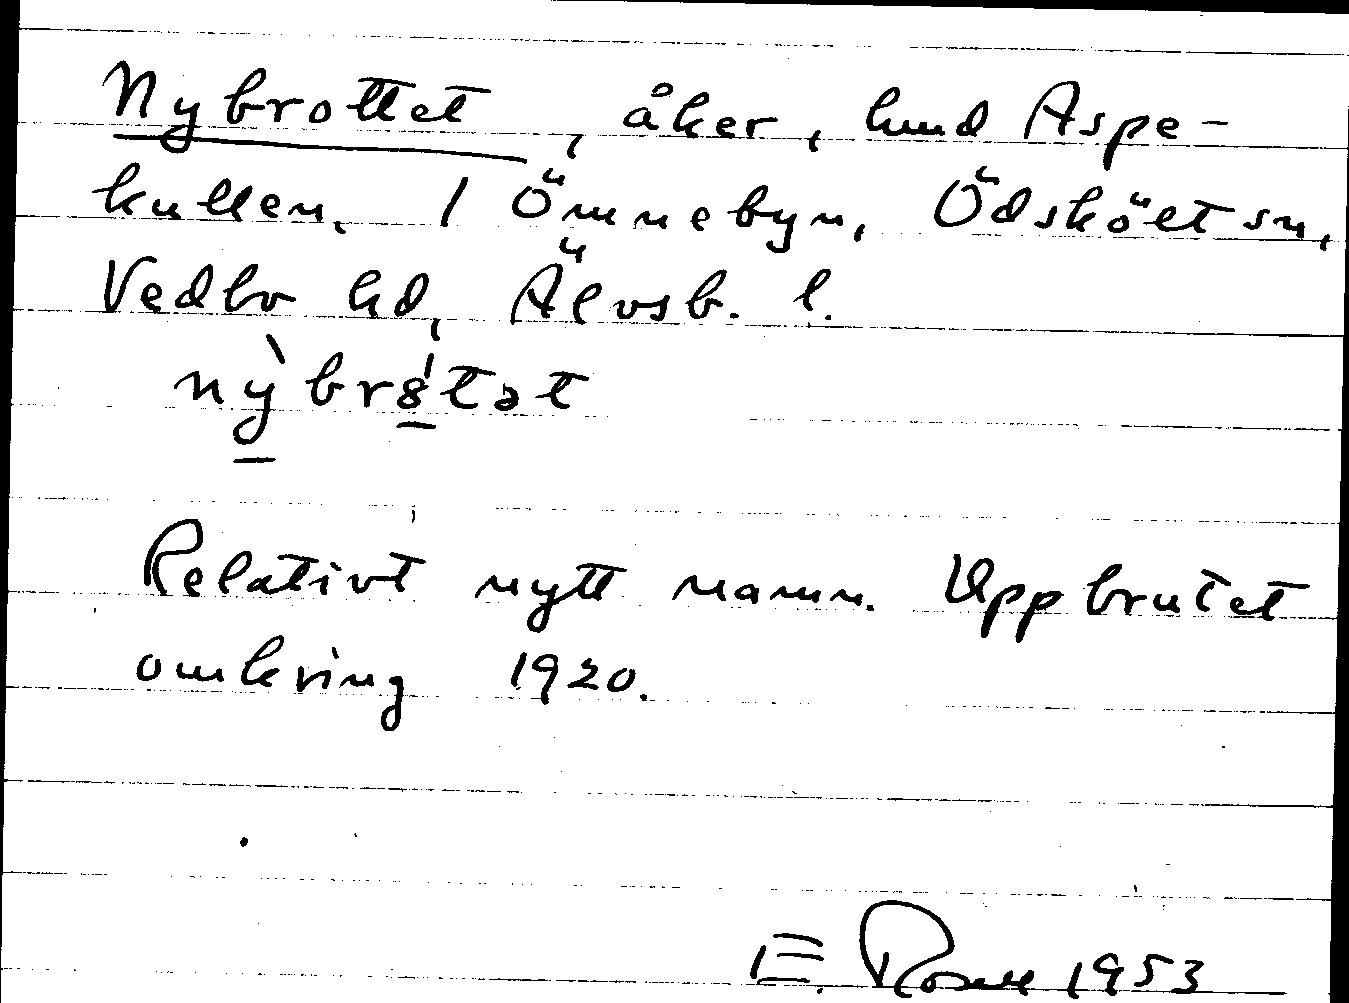 Nybrottet, åker, hmd Aspe-
kullen, 1 Ömnebyn, Ödsköelt sn,
Vedbo hd, Älvsb. l.
nỳbr8́tət
Relativt nytt namn. Uppbrutet
omkring 1920.
E. Rosell 1953